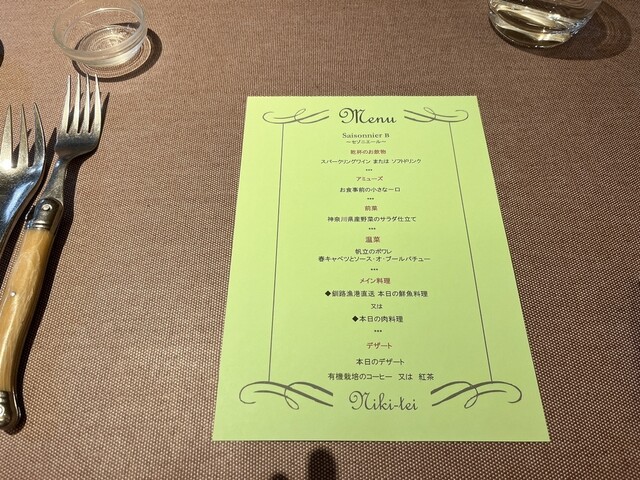 Menu
Saisonnier B
～セゾニエール～
乾杯のお飲物
スパークリングワイン または ソフトドリンク
***
アミューズ
お食事前の小さな一口
***
前菜
神奈川県産野菜のサラダ仕立て
***
温菜
帆立のポワレ
春キャベツとソース・オ・ブールバチュー
***
メイン料理
◆釧路漁港直送 本日の鮮魚料理
又は
◆本日の肉料理
***
デザート
本日のデザート
有機栽培のコーヒー 又は 紅茶
Niki-tei